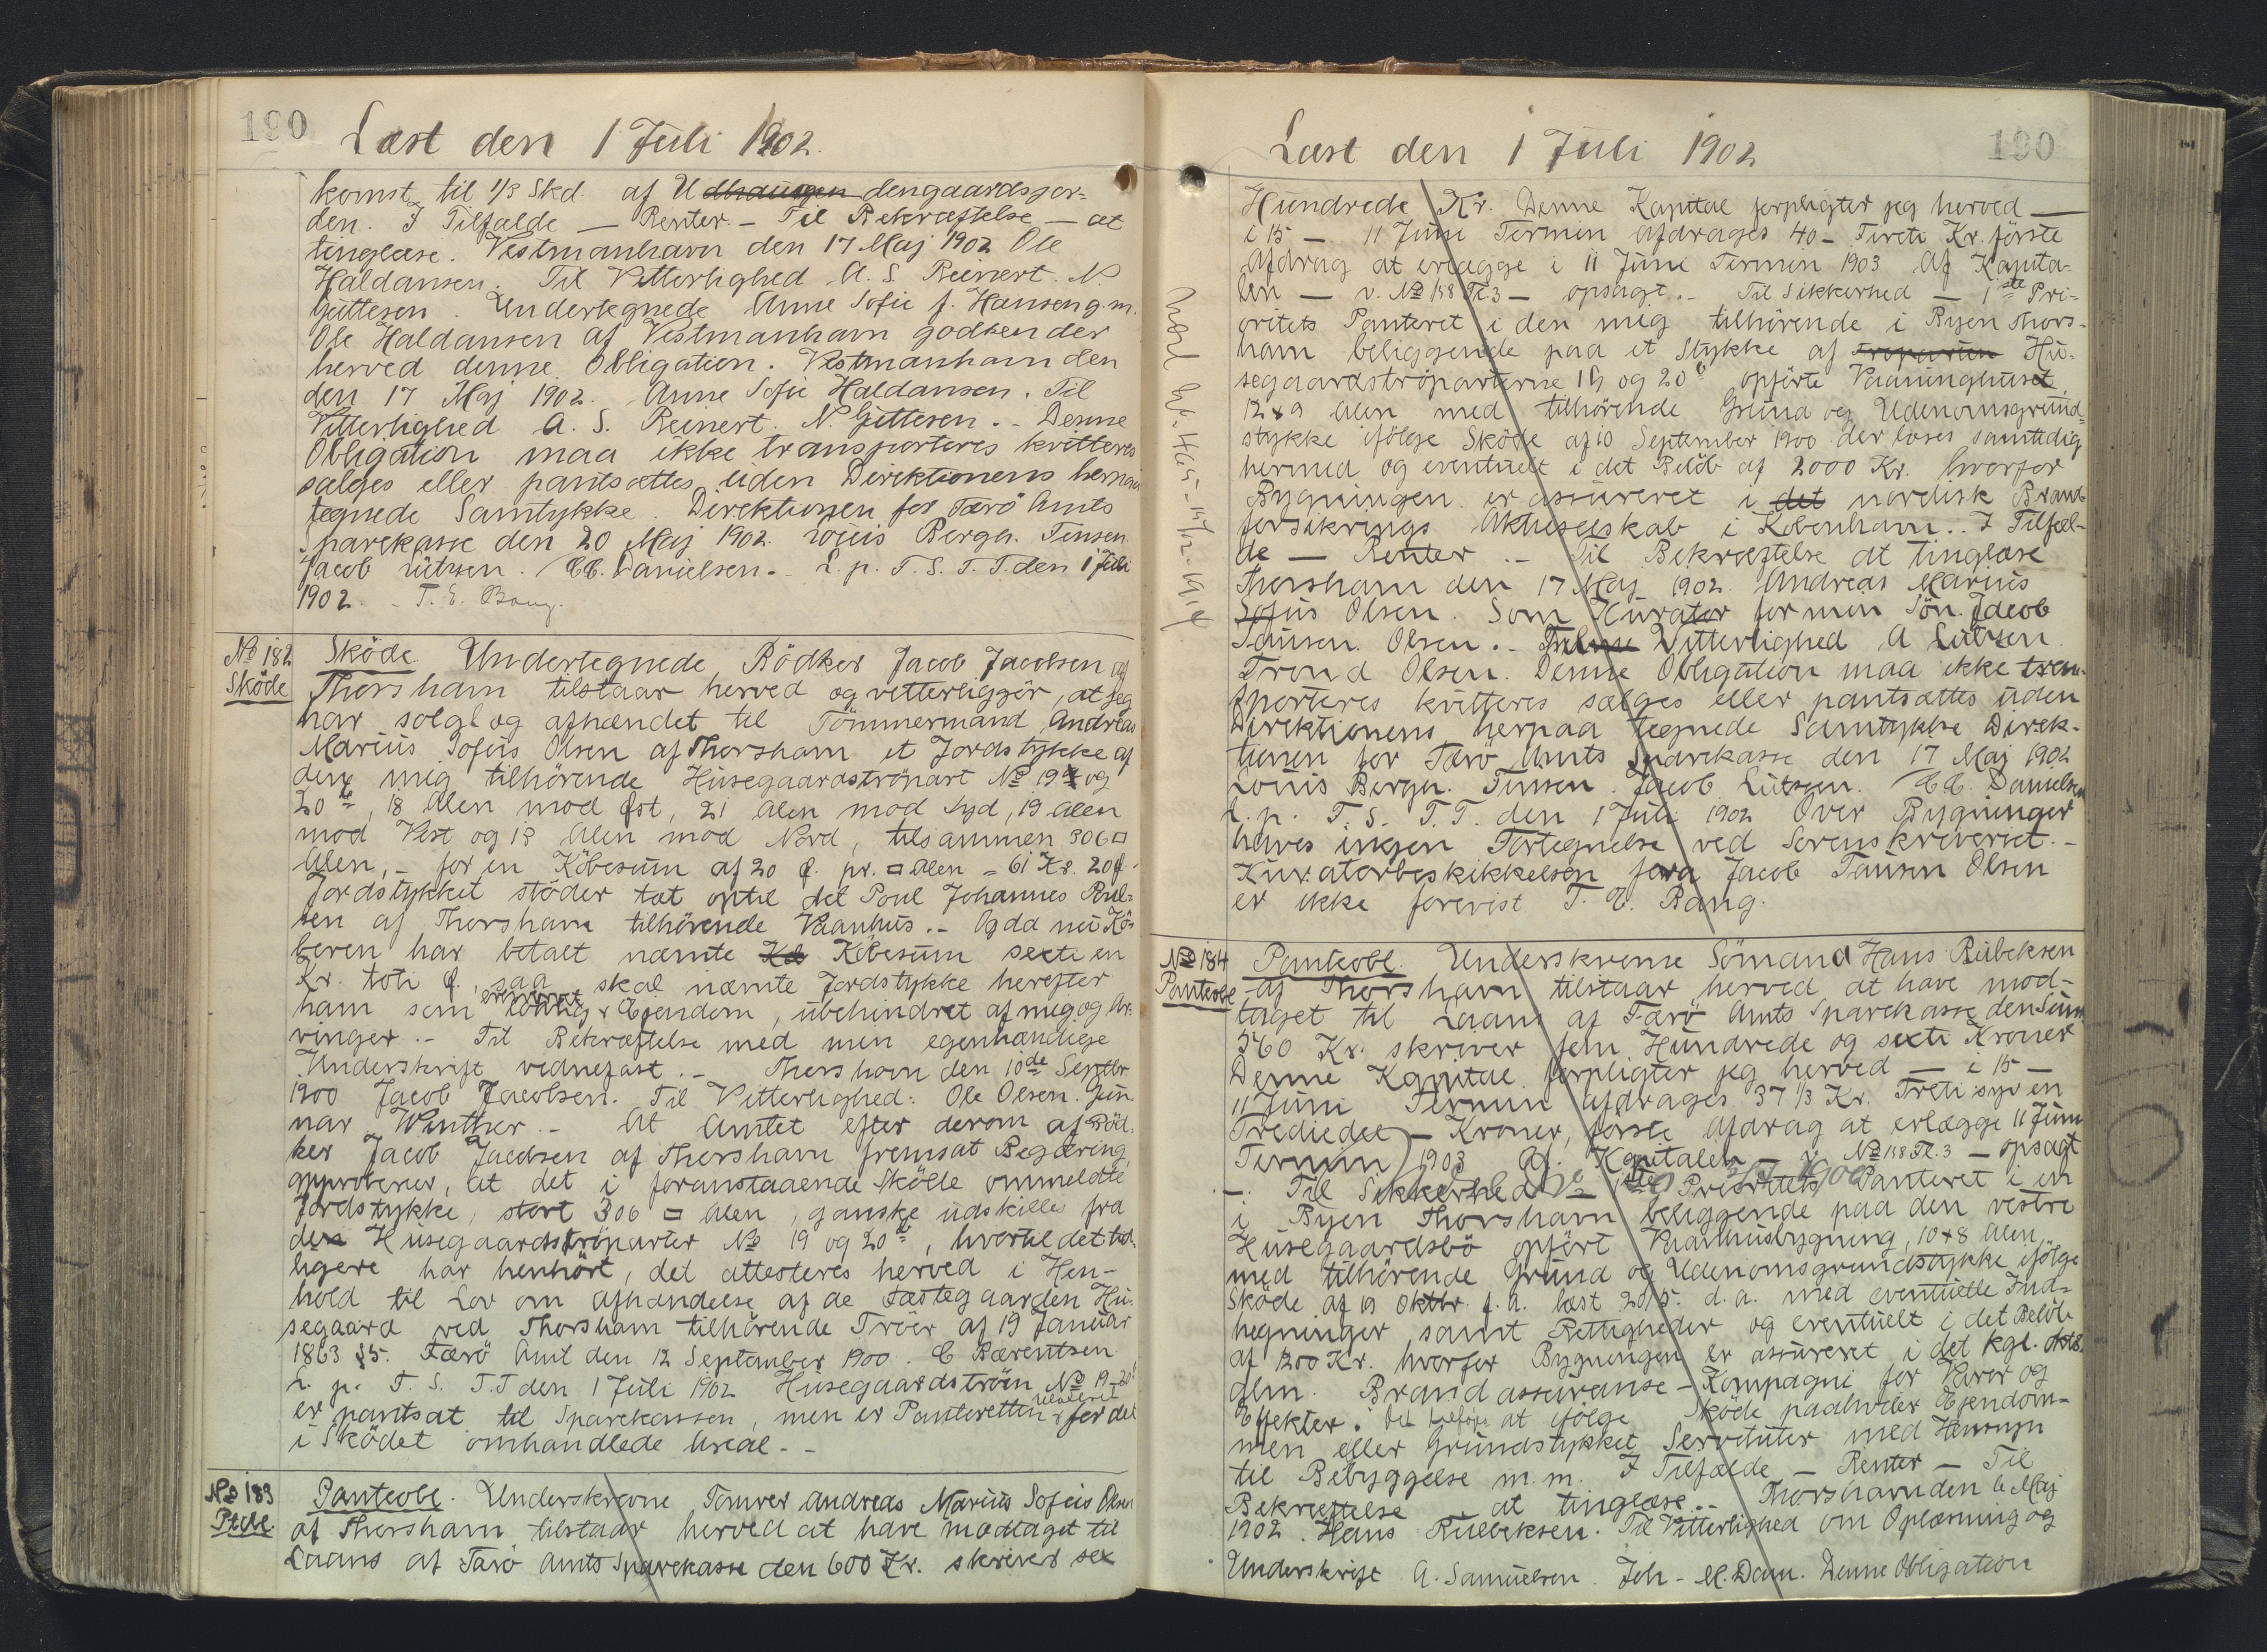 190
Læst den 1 Juli 1902.
komst til 1/3 Skd. af U dengaardsjor-
den. I Tilfælde — Renter. — Til Bekræftelse — at
tinglæse. Vestmanhavn den 17 Maj 1902 Ole
Haldansen. Til Vitterlighed A. S. Reinert. N.
Guttesen. Undertegnede Anne Sofie f. Hansen g. m.
Ole Haldansen af Vestmanhavn godkender
herved denne Obligation. Vestmanhavn den
den 17 Maj 1902. Anne Sofie Haldansen. Til
Vitterlighed A. S. Reinert. N. Guttesen. - Denne
Obligation maa ikke transporteres kvitteres
sælges eller pantsættes uden Direktionens herpaa
tegnede Samtykke. Direktionen for Færö Amts
Sparekasse den 20 Maj 1902. Louis Bergh. Finsen.
Jacob Lützen. C.C. Danielsen. - L. p. T. S. T. T. den 1 Juli
1902. - T. E. Bang.
No 182
Sköde
Sköde. Undertegnede Bödker Jacob Jacobsen af
Thorshavn tilstaar herved og vitterliggör, at jeg
har solgt og afhændet til Tömmermand Andreas
Marius Sofus Olsen af Thorshavn et Jordstykke af
den mig tilhörende Husegaardströpart No 19 og
20de, 18 Alen mod Öst, 21 Alen mod Syd, 19 Alen
mod Vest og 13 Alen mod Nord, tilsammen 306 □
Alen, - for en Köbesum af 20 Ø. pr. □ Alen = 61 Kr. 20 Ø.
Jordstykket stöder tæt optil det Poul Johannes Poul-
sen af Thorshavn tilhörende Vaanhus. - Og da nu Kö-
beren har betalt nævnte Köbesum sexti en
Kr. toti Ø., saa skal nævnte Jordstykke herefter
ham som erhvervet lovlig Ejendom, ubehindret af mig og Ar-
vinger. - Til Bekræftelse med min egenhændige
Underskrift vednefæst. - Thorshavn den 10de Septbr
1900 Jacob Jacobsen. Til Vitterlighed: Ole Olsen. Gun-
nar Winther. - At Amtet efter derom af Böd-
ker Jacob Jacobsen af Thorshavn fremsat Begæring
approberer, at det i foranstaaende Sköde ommeldte
Jordstykke, stort 306 □ Alen, ganske udskilles fra
den Husegaardströparter No 19 og 20de, hvortil det tid-
ligere har henhört, det attesteres herved i Hen-
hold til Lov om Afhændelse af de Fæstegaarden Hu-
segaard ved Thorshavn tilhörende Tröer af 19 Januar
1863 § 5. Færö Amt den 12 September 1900. C Bærentsen
L. p. T. S. T. T den 1 Juli 1902 Husegaardströen No 19-20
er pantsat til Sparekassen, men er Panteretten relaxeret for det
i Sködet omhandlede Areal. -
No 183
Ptobl.
Panteobl. Underskrevne Tömrer Andreas Marius Sofus Olsen
af Thorshavn tilstaar herved at have modtaget til
Laans af Færö Amts Sparekasse den 600 Kr. skriver sex
Læst den 1 Juli 1902
190
Hundrede Kr. Denne Kapital forpligter jeg herved —
i 15 — 11 Juni Termin Afdrages 40 - Fireti Kr. förste
Afdrag at erlægge i 11 Juni Termin 1903 Af Kapita-
len — v. No 158 Tl 3 — opsagt. - Til Sikkerhed — 1ste Pri-
oritets Panteret i den mig tilhörende i Byen Thors-
havn beliggende paa et Stykke af Hu-
segaardströparterne 19 og 20 opförte Vaaninghuset
12 x 9 Alen med tilhörende Grund og Udenomsgrund-
stykke ifölge Sköde af 10 September 1900 der læses samtidig
hermed og eventuelt i det Belöb af 2000 Kr. hvorfor
Bygningen er assureret i det nordisk Brand-
forsikrings Aktieselskab i Köbenhavn. . I Tilfæl-
de — Renter. - Til Bekræftelse at tinglæse
Thorshavn den 17 Maj 1902. Andreas Marius
Sofus Olsen. Som Kurator for min Sön Jacob
Tausen Olsen. - Vitterlighed A Lützen.
Trond Olsen. Denne Obligation maa ikke tran-
sporteres kvitteres sælges eller pantsættes uden
Direktionens herpaa tegnede Samtykke Direk-
tionen for Færö Amts Sparekasse den 17 Maj 1902
Louis Bergh. Finsen. Jacob Lützen. C.C. Danielsen
L. p. T. S. T. T. den 1 Juli 1902 Over Bygninger
haves ingen Fortegnelse ved Sorenskriveriet. -
Kuratorbeskikkelsen fora Jacob Tausen Olsen
er ikke forevist T. E. Bang.
No 184
Panteobl
Panteobl. Underskrevne Sömand Hans Rubeksen
af Thorshavn tilstaar herved at have mod-
taget til Laans af Færö Amts Sparekasse den Sum
560 Kr. skriver fem Hundrede og sexti Kroner
Denne Kapital forpligter jeg herved — i 15 —
11 Juni Termin afdrages 37 1/3 Kr. Treti syv en
Trediedel — Kroner, förste Afdrag at erlægge 11 Juni
Termin 1903 Af Kapitalen — v. No 158 Tl. 3 — opsagt
—. Til Sikkerhed — 1ste Prioritets Panteret i en
i Byen Thorshavn beliggende paa den vestre
Husegaardsbö opfört Vaanhusbygning, 10 x 8 Alen,
med tilhörende Grund og Udenomsgrundstykke ifölge
Sköde af 19 Oktbr f. A. læst 20/5. d. a. med eventuelle Ind-
hegninger, samt Rettigheder og eventuelt i det Belöb
af 1200 Kr. hvorfor Bygningen er assureret i det kgl. oktr.
alm. Brandassurance-Kompagni for Varer og
Effekter. Det tilföjes at ifölge Sköde paahviler Ejendom-
men eller Grundstykket Servituter med Hensyn
til Bebyggelse m. m. I Tilfælde — Renter — Til
Bekræftelse at tinglæse. - Thorshavn den 6 Maj
1902. Hans Rubeksen. Til Vitterlighed om Oplæsning og
Underskrift A. Samuelsen. Joh - M. Dam. Denne Obligation